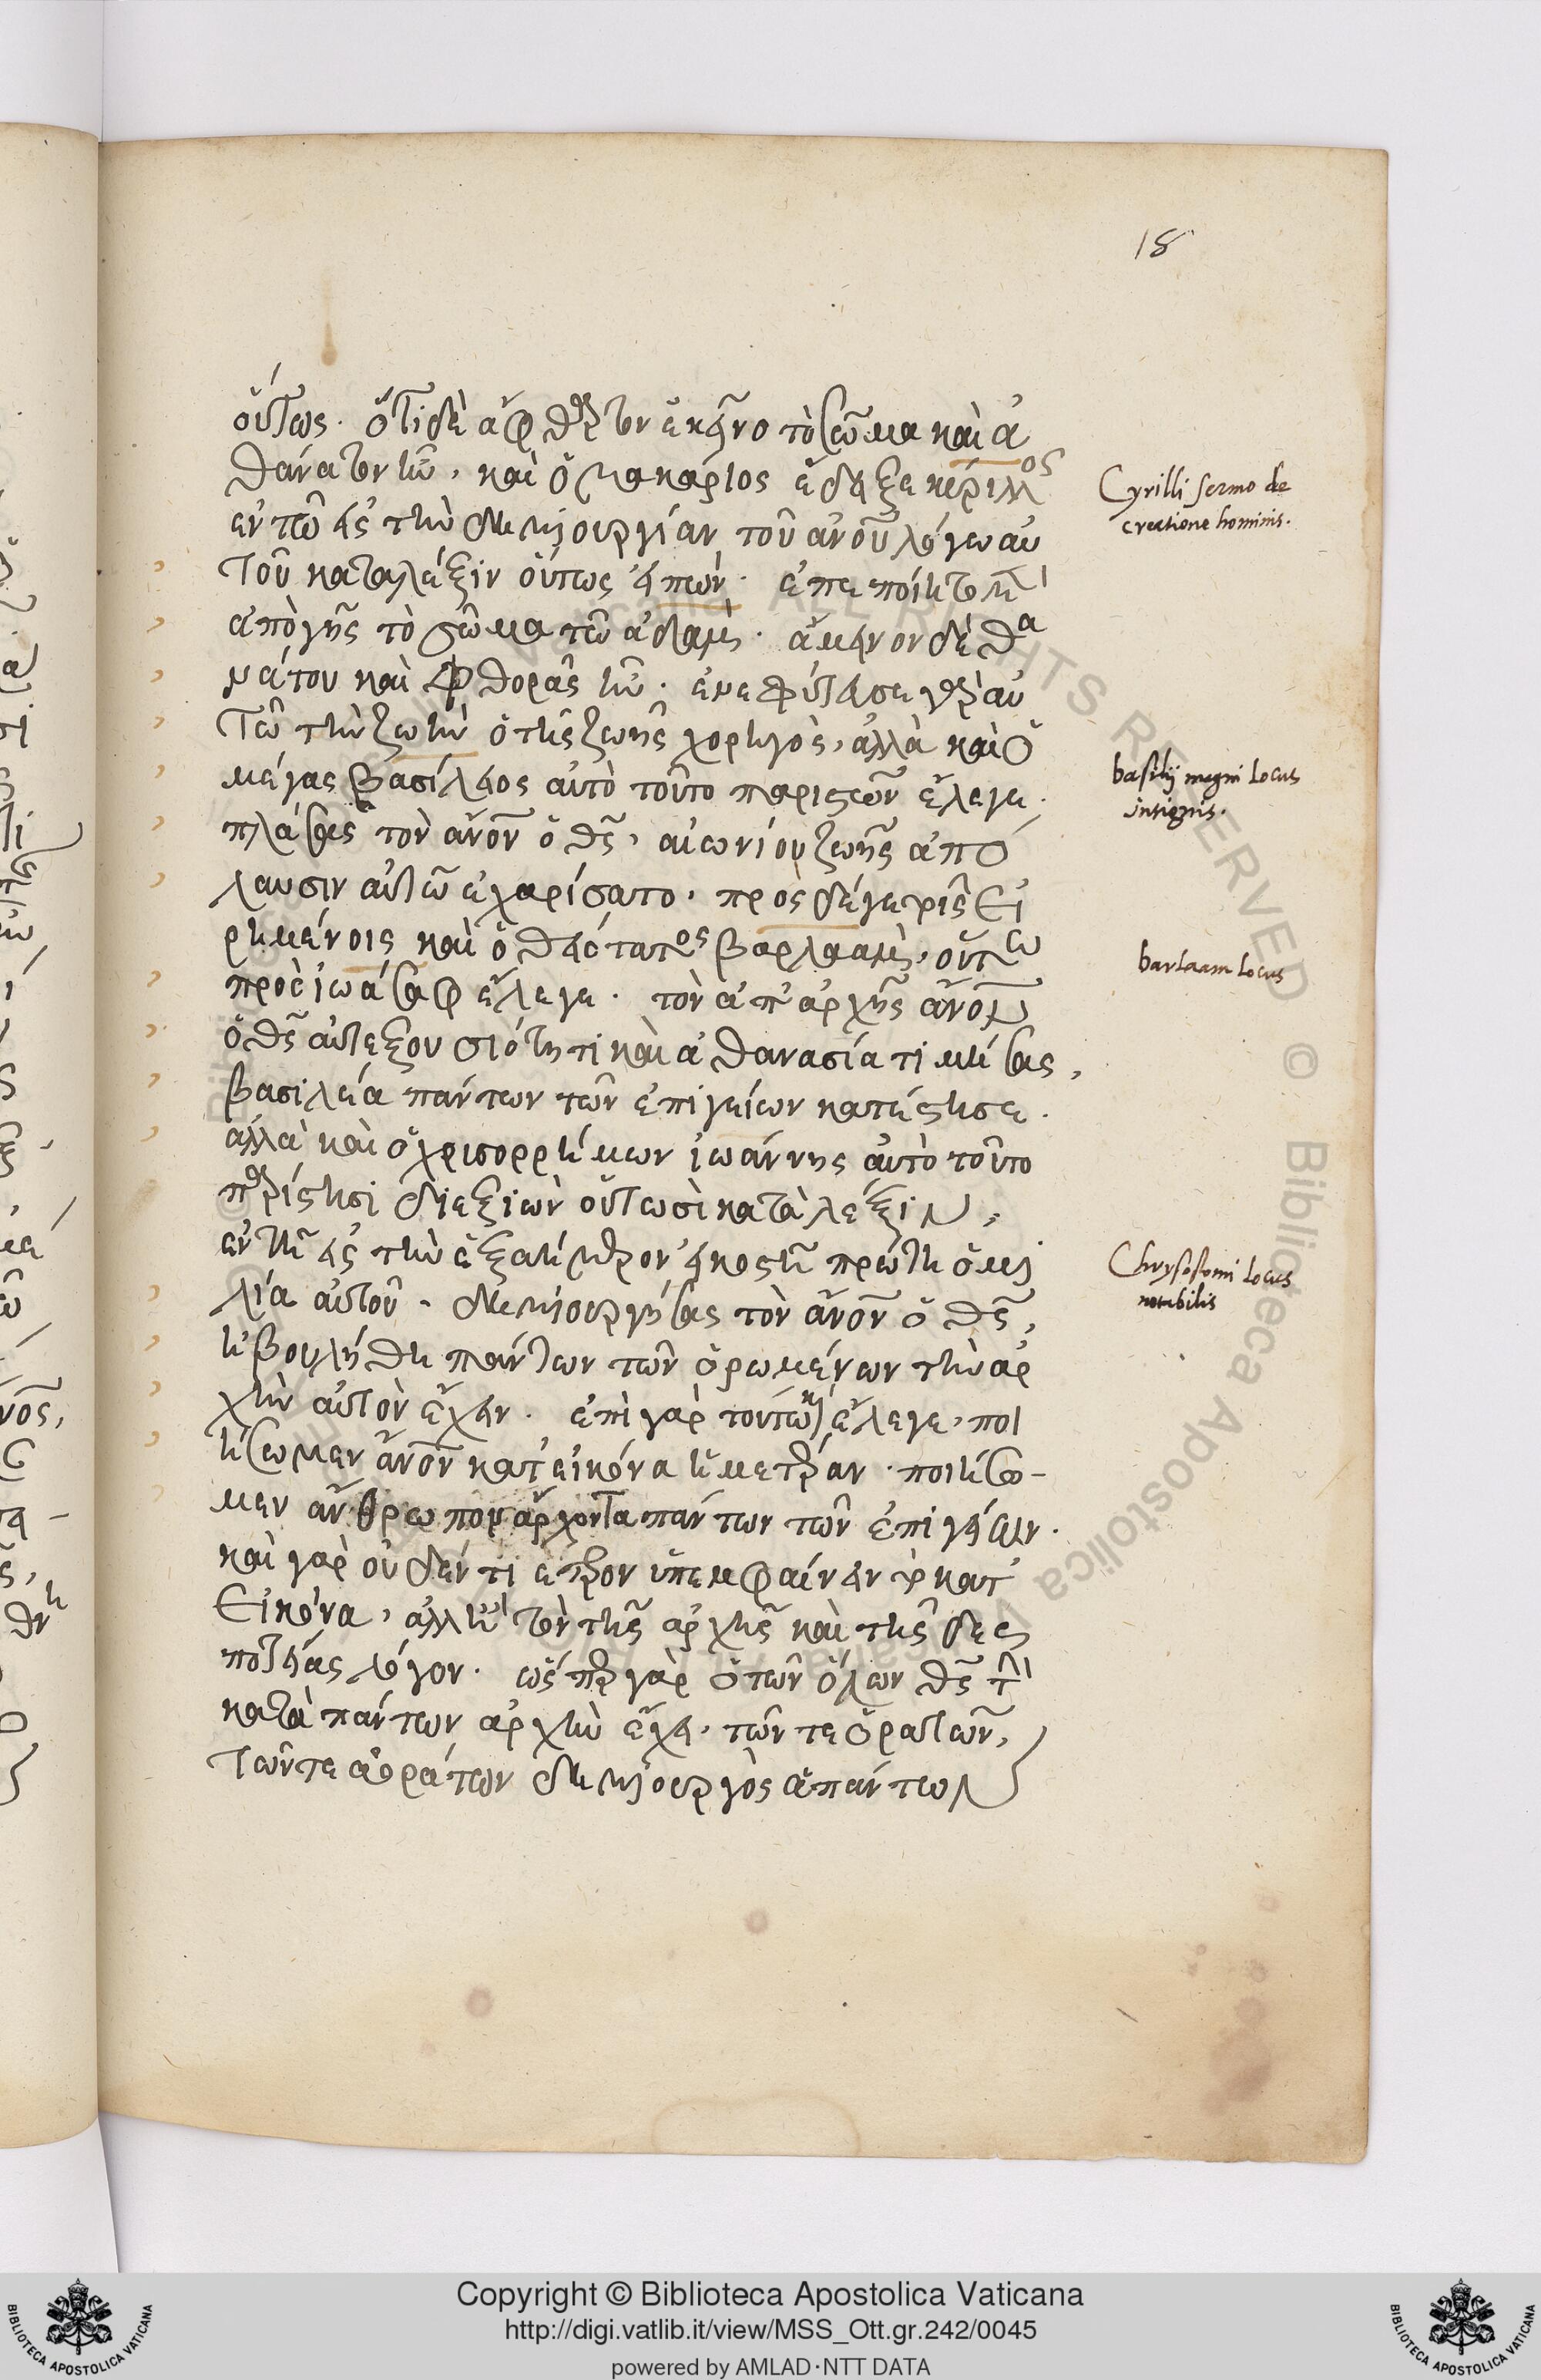 18
οὕτως. ὅτι δὲ ἄφθαρτον ἐκεῖνο τὸ σῶμα καὶ ἀ
θάνατον ἦν, καὶ ὁ μακάριος ἔδειξε κύριλλος
ἐν τῷ εἰς τὴν δημιουργίαν τοῦ ἀνου λόγω αὐ
τοῦ κατα λέξιν οὕτως εἰπών. ἐπεποίητο μὲν
ἀπὸ γῆς τὸ σῶμα τῶ ἀδαμ. ἄμεινον δὲ θα
νάτου καὶ φθορᾶς ἦν. ἐνεφύτευσε γὰρ αὐ
τῶ τὴν ζωὴν ὁ τῆς ζωῆς χορηγὸς, ἀλλὰ καὶ ὁ
μέγας βασίλειος αὐτὸ τοῦτο παριστῶν ἔλεγε.
πλάσας τὸν ἄνον ὁ θς, αἰωνίου ζωῆς ἀπό
λαυσιν αὐτῶ ἐχαρίσατο. πρὸς δέγε τοῖς εἰ
ρημένοις καὶ ὁ θειότατος βαρλααμ, οὕτω
πρὸς ἰωάσαφ ἔλεγε. τὸν ἀπ' ἀρχῆς ἄνον
ὁ θς αὐτεξουσιότητι καὶ ἀθανασία τιμήσας,
βασιλέα πάντων τῶν ἐπιγείων κατέστησε.
ἀλλὰ καὶ ὁ χρισορρήμων ἰωάννης αὐτὸ τοῦτο
παρίστησι διεξιὼν οὑτωσὶ κατὰ λέξιν,
ἐν τῆ εἰς τὴν ἑξαήμερον εἰκοστῆ πρώτη ὁμι
λία αὐτοῦ. δημιουργήσας τὸν ἄνον ὁ θς,
ἠβουλήθη πάντων τῶν ὁρωμένων τὴν ἀρ
χὴν αὐτὸν ἔχειν. ἐπὶ γὰρ τούτω καὶ ἔλεγε, ποι
ήσωμεν ἄνον κατ' εἰκόνα ἡμετέραν. ποιήσω-
μεν ἄνθρωπον ἄρχοντα πάντων τῶν ἐπιγείων.
καὶ γὰρ οὐδέν τι ἕτερον ὑπεμφαίνειν τὸ κατ'
εἰκόνα, ἀλλ' ἢ τὸν τῆς ἀρχῆς καὶ τῆς δεσ
ποτείας λόγον. ὥσπερ γὰρ ὁ τῶν ὅλων θς τὴν
κατὰ πάντων ἀρχὴν ἔχει. τῶν τε ὁρατῶν,
τῶν τε ἀοράτων δημιουργὸς ἁπάντων
Cyrilli sermo de
creatione hominis.
basilij magni Locus
insignis.
barlaam locus
Chrysostomi locus
notabilis
Copyright © Biblioteca Apostolica Vaticana
http://digi.vatlib.it/view/MSS_Ott.gr.242/0045
powered by AMLAD·NTT DATA
BIBLIOTECA APOSTOLICA VATICANA
BIBLIOTECA APOSTOLICA VATICANA